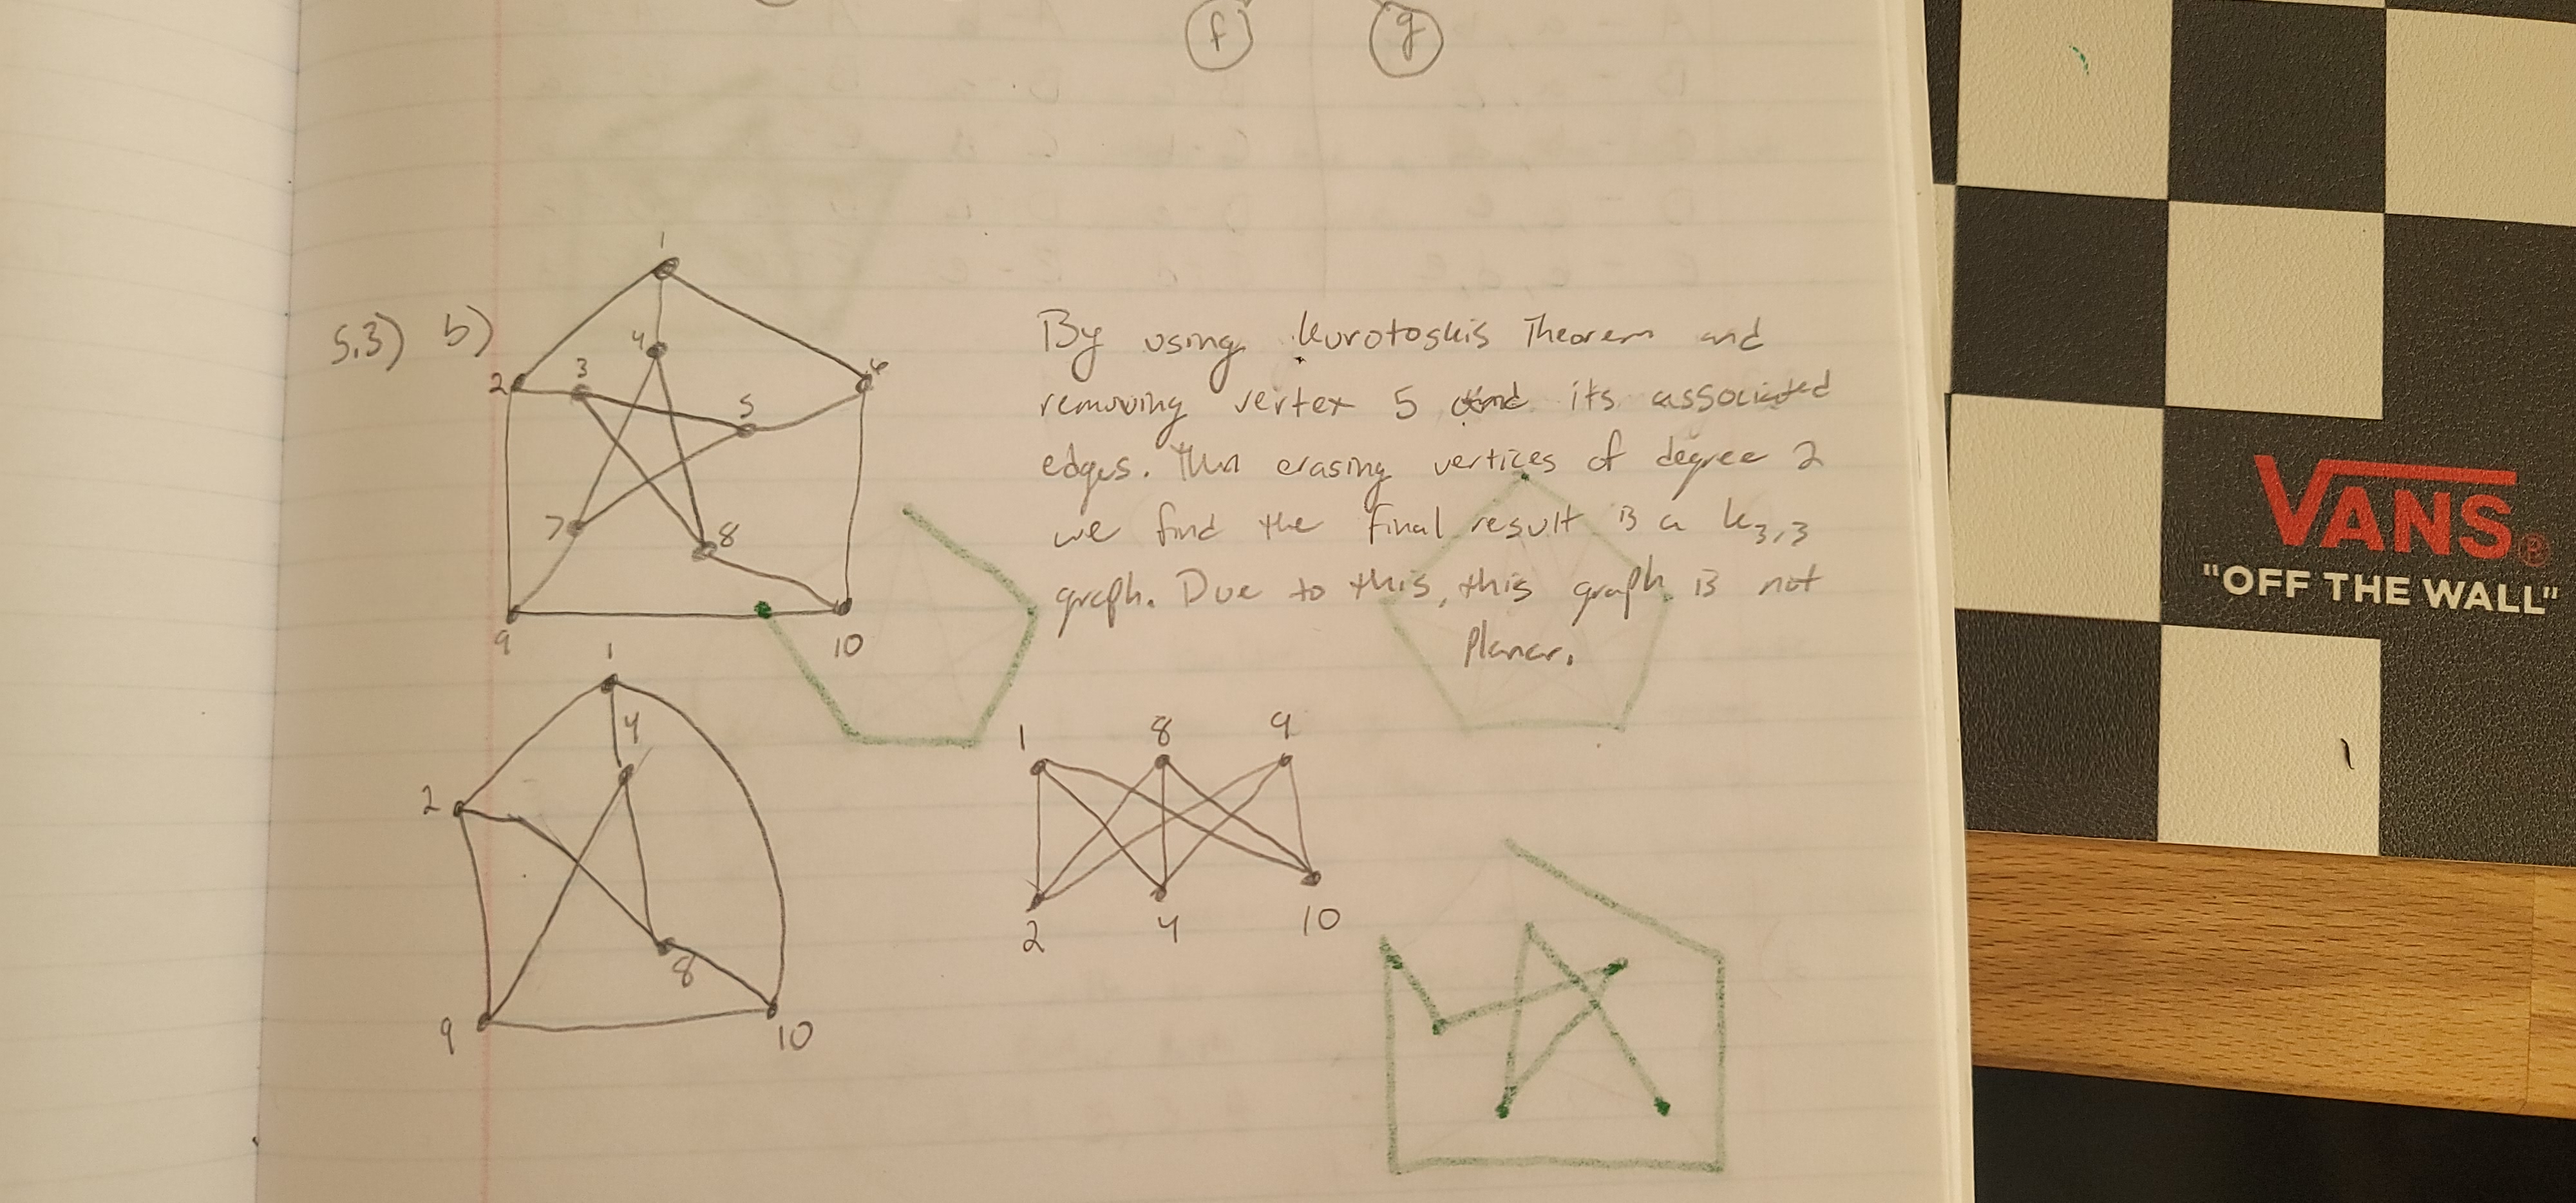 5.3) b)
1
2
3
4
5
6
7
8
9
10
By using Kurotoskis Theorem and
removing vertex 5 and its associated
edges. Then erasing vertices of degree 2
we find the final result is a K3,3
graph. Due to this, this graph is not
Planar.
1
2
4
8
9
10
1 8 9
2 4 10
f)
g
VANS®
"OFF THE WALL"